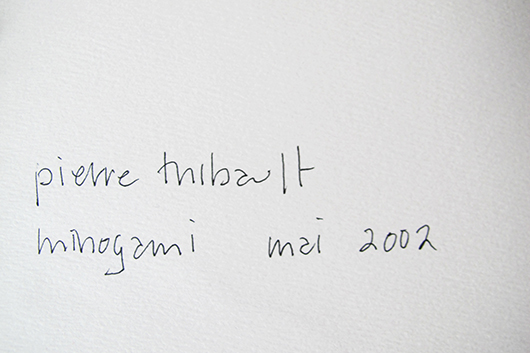 pierre thibault
minogami mai 2002